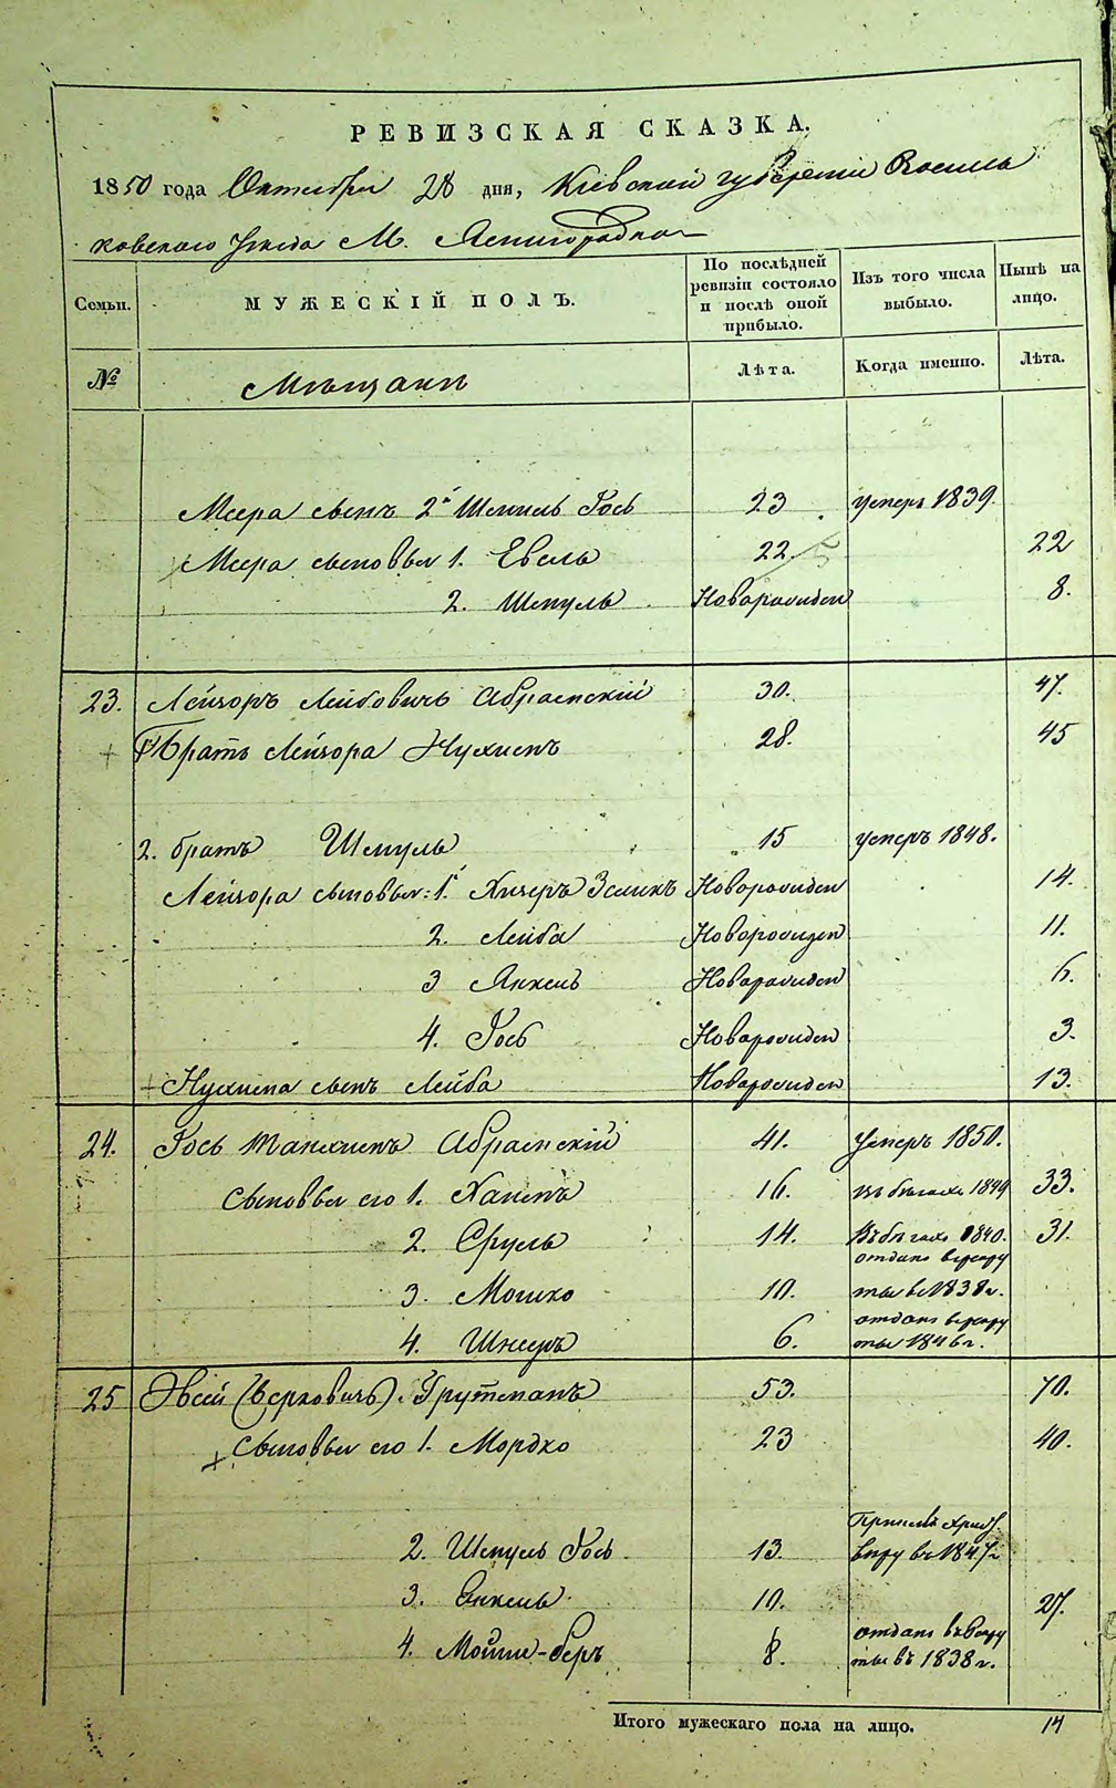 РЕВИЗСКАЯ СКАЗКА.
1850 года Октября 28 дня, Кіевской губерніи Василь
ковского уѣзда М. Ясногородка
Семьи. МУЖЕСКІЙ ПОЛЪ. По послѣдней ревизіи состояло и послѣ оной прибыло. Изъ того числа выбыло. Нынѣ на лицо.
№ Мѣщане Лѣта. Когда именно. Лѣта.
Меера сынъ 2й Шмиль Гось 23 умеръ 1839.
Меера сыновья 1. Евель 22. 22
2. Шмуль Новорожден 8.
23. Лейзоръ Лейбовичъ Абрамскій 30. 47.
1й Братъ Лейзора Нухимъ 28. 45
2. братъ Шмуль 15 умеръ 1848.
Лейзора сыновья: 1й Зеликъ Новорожден 14.
2. Лейба Новорожден 11.
3 Янкель Новорожден 6.
4. Гось Новорожден 3.
Нухима сынъ Лейба Новорожден 13.
24. Гось Танхимъ Абрамскій 41. Умеръ 1850.
Сыновья его 1. Хаимъ 16. въ бѣгахъ 1849 33.
2. Сруль 14. Въ бѣгахъ 1840. 31.
3. Мошко 10. отданъ в рекру
ты в 1838 г.
4. Шнеръ 6. отданъ в рекру
ты 1846 г.
25 Эвсей (Берковичъ) Грутманъ 53. 70.
Сыновья его 1. Мордко 23 40.
2. Шмуль Гось 13. Принялъ христ.
вѣру въ 1847 г
3. Янкель 10. 27.
4. Мойше-беръ 8. отданъ въ рекру
ты въ 1838 г.
Итого мужескаго пола на лицо. 14